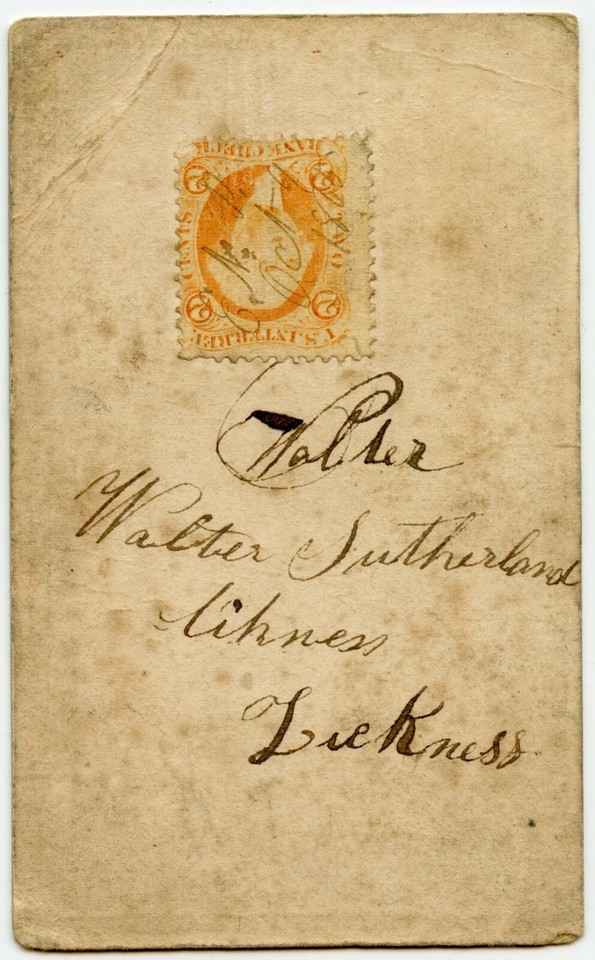 U.S. INTER. REV.
BANK CHECK
TWO
CENTS
2
2
2
2
Oct
Walter
Walter Sutherland
likness
Lickness